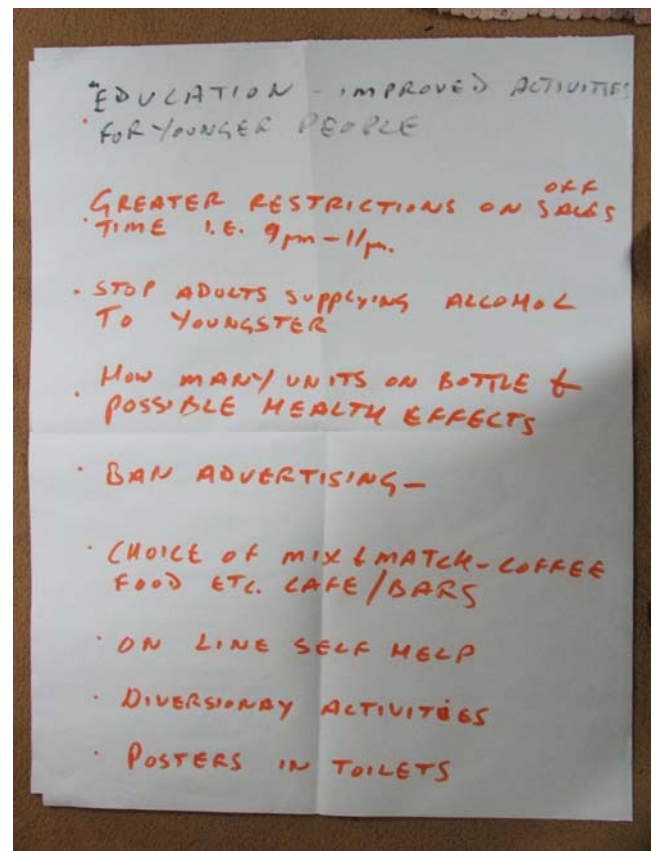 "EDUCATION - IMPROVED ACTIVITIES
· FOR YOUNGER PEOPLE
OFF
GREATER RESTRICTIONS ON SALES
· TIME I.E. 9pm-11pm.
· STOP ADULTS SUPPLYING ALCOHOL
TO YOUNGSTER
HOW MANY UNITS ON BOTTLE &
· POSSIBLE HEALTH EFFECTS
· BAN ADVERTISING-
· CHOICE OF MIX & MATCH-COFFEE
FOOD ETC. CAFE/BARS
· ON LINE SELF HELP
· DIVERSIONAY ACTIVITIES
· POSTERS IN TOILETS